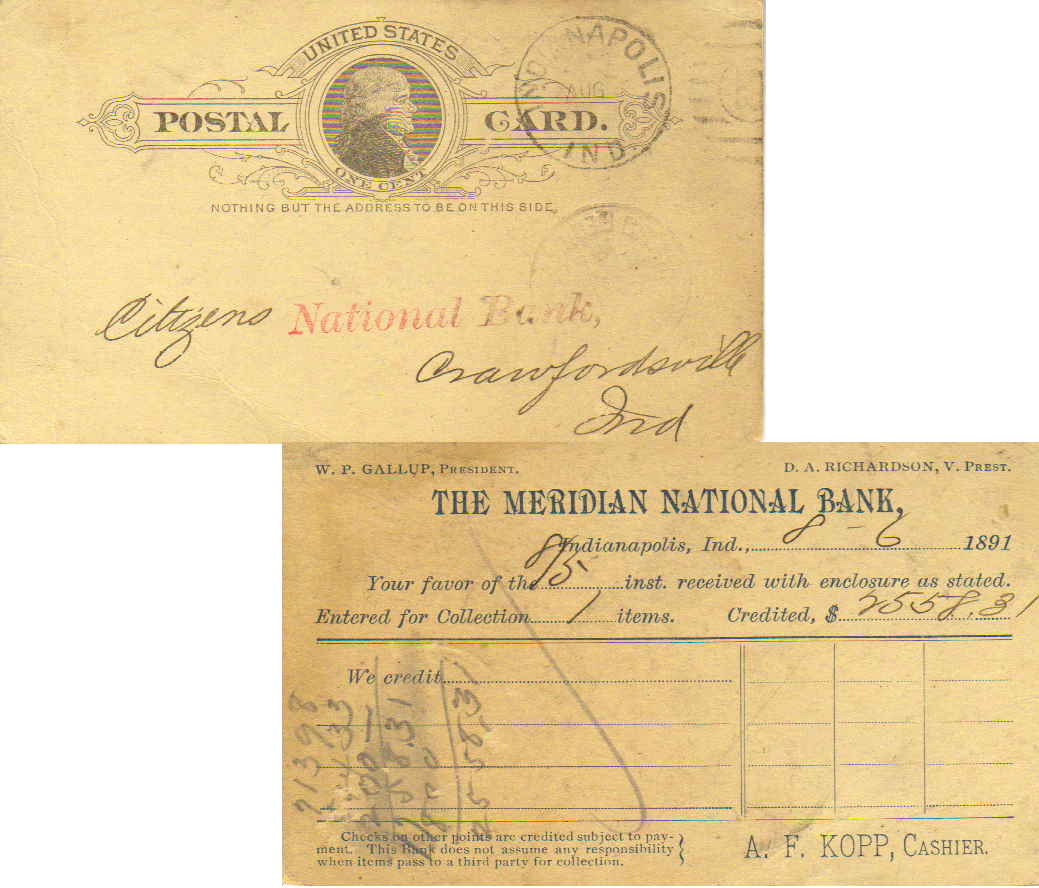 UNITED STATES
POSTAL CARD.
ONE CENT
NOTHING BUT THE ADDRESS TO BE ON THIS SIDE.
INDIANAPOLIS
AUG
IND
Citizens National Bank,
Crawfordsville
Ind
W. P. GALLUP, PRESIDENT. D. A. RICHARDSON, V. PREST.
THE MERIDIAN NATIONAL BANK,
Indianapolis, Ind., 8-6 1891
Your favor of the 8/5 inst. received with enclosure as stated.
Entered for Collection 1 items. Credited, $ 2558.31
We credit
2558.31
Checks on other points are credited subject to pay-
ment. This Bank does not assume any responsibility
when items pass to a third party for collection.
A. F. KOPP, CASHIER.